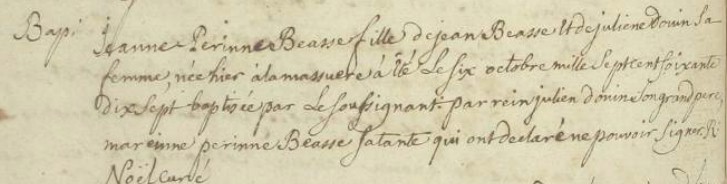 Bap. jeanne Perinne Beasse fille de jean Beasse Et de juliene Douin sa
femme, née hier à la massuere à été Le six octobre mille Sept cent soixante
dix Sept baptisée par Le soussignant par rein julien douin son grand pere
mareinne perinne Beasse sa tante qui ont declaré ne pouvoir signer
Noël curé